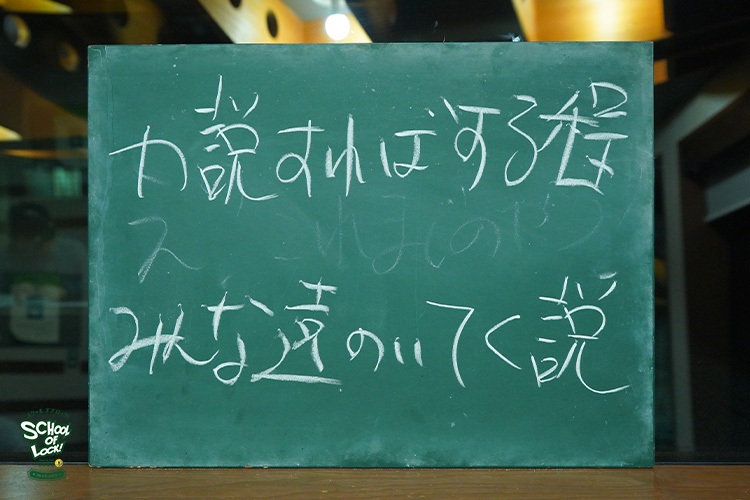 力説すればする程
みんな遠のいてく説
SCHOOL OF LOCK!